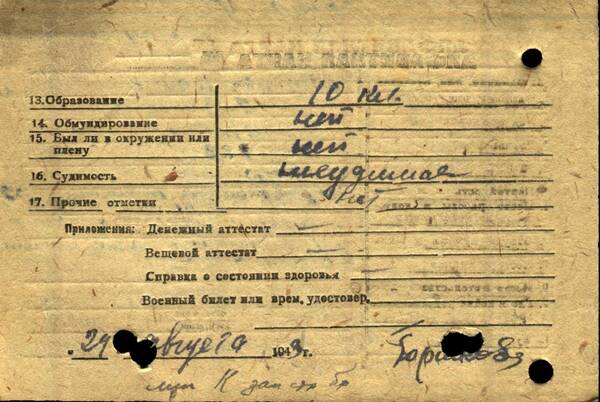 13. Образование 10 кл.
14. Обмундирование нет
15. Был ли в окружении или
плену нет
16. Судимость
17. Прочие отметки нет
Приложения: Денежный аттестат —
Вещевой аттестат —
Справка о состоянии здоровья —
Военный билет или врем. удостовер.
" 24 " августа 1943г.
К зап стр бр